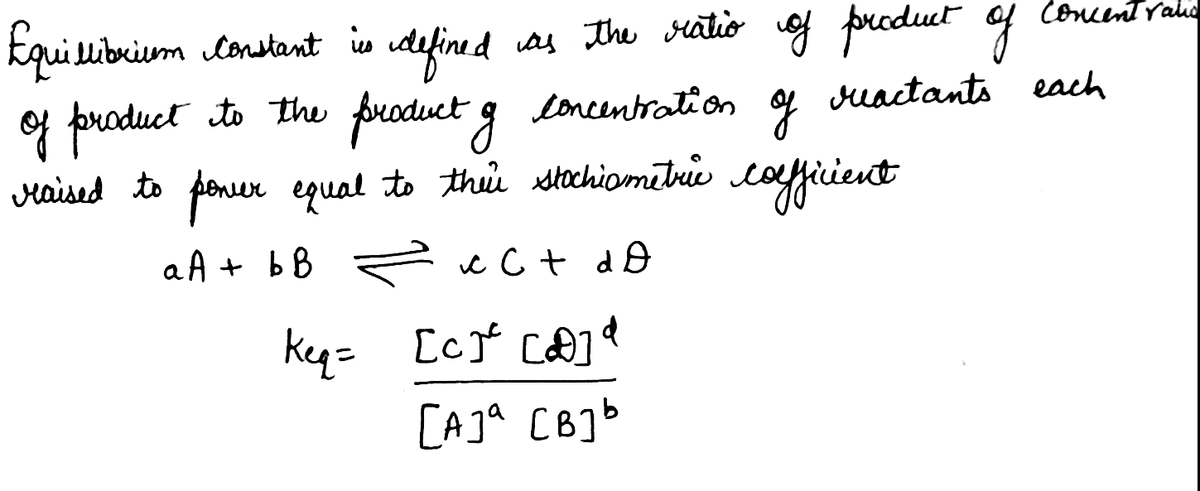 Equillibrium constant is defined as the ratio of product of concentratio
of product to the product of concentration of reactants each
raised to power equal to their stochiometric coefficient
aA + bB ⇌ cC + dD
Keq = [C]^c [D]^d
[A]^a [B]^b